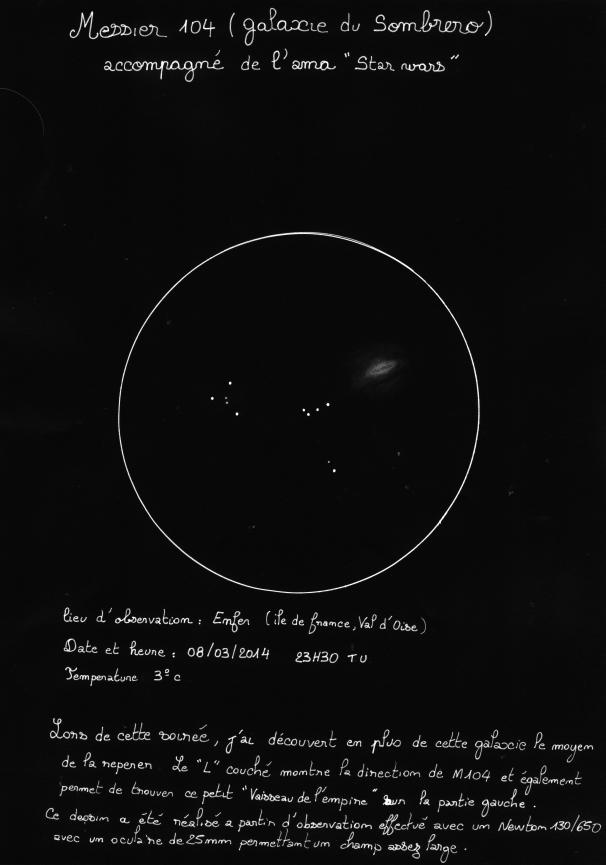 Messier 104 (galaxie du Sombrero)
accompagné de l'ama "Star wars"
lieu d'observation : Enfer (île de france, Val d'Oise)
Date et heure : 08/03/2014 23H30 TU
Température 3°c
Lors de cette soirée, j'ai découvert en plus de cette galaxie le moyen
de la reperer Le "L" couché montre la direction de M104 et également
permet de trouver ce petit "Vaisseau de l'empire" sur la partie gauche.
Ce dessin a été réalisé a partir d'observation effectué avec un Newton 130/650
avec un oculaire de 25mm permettant un champ assez large.